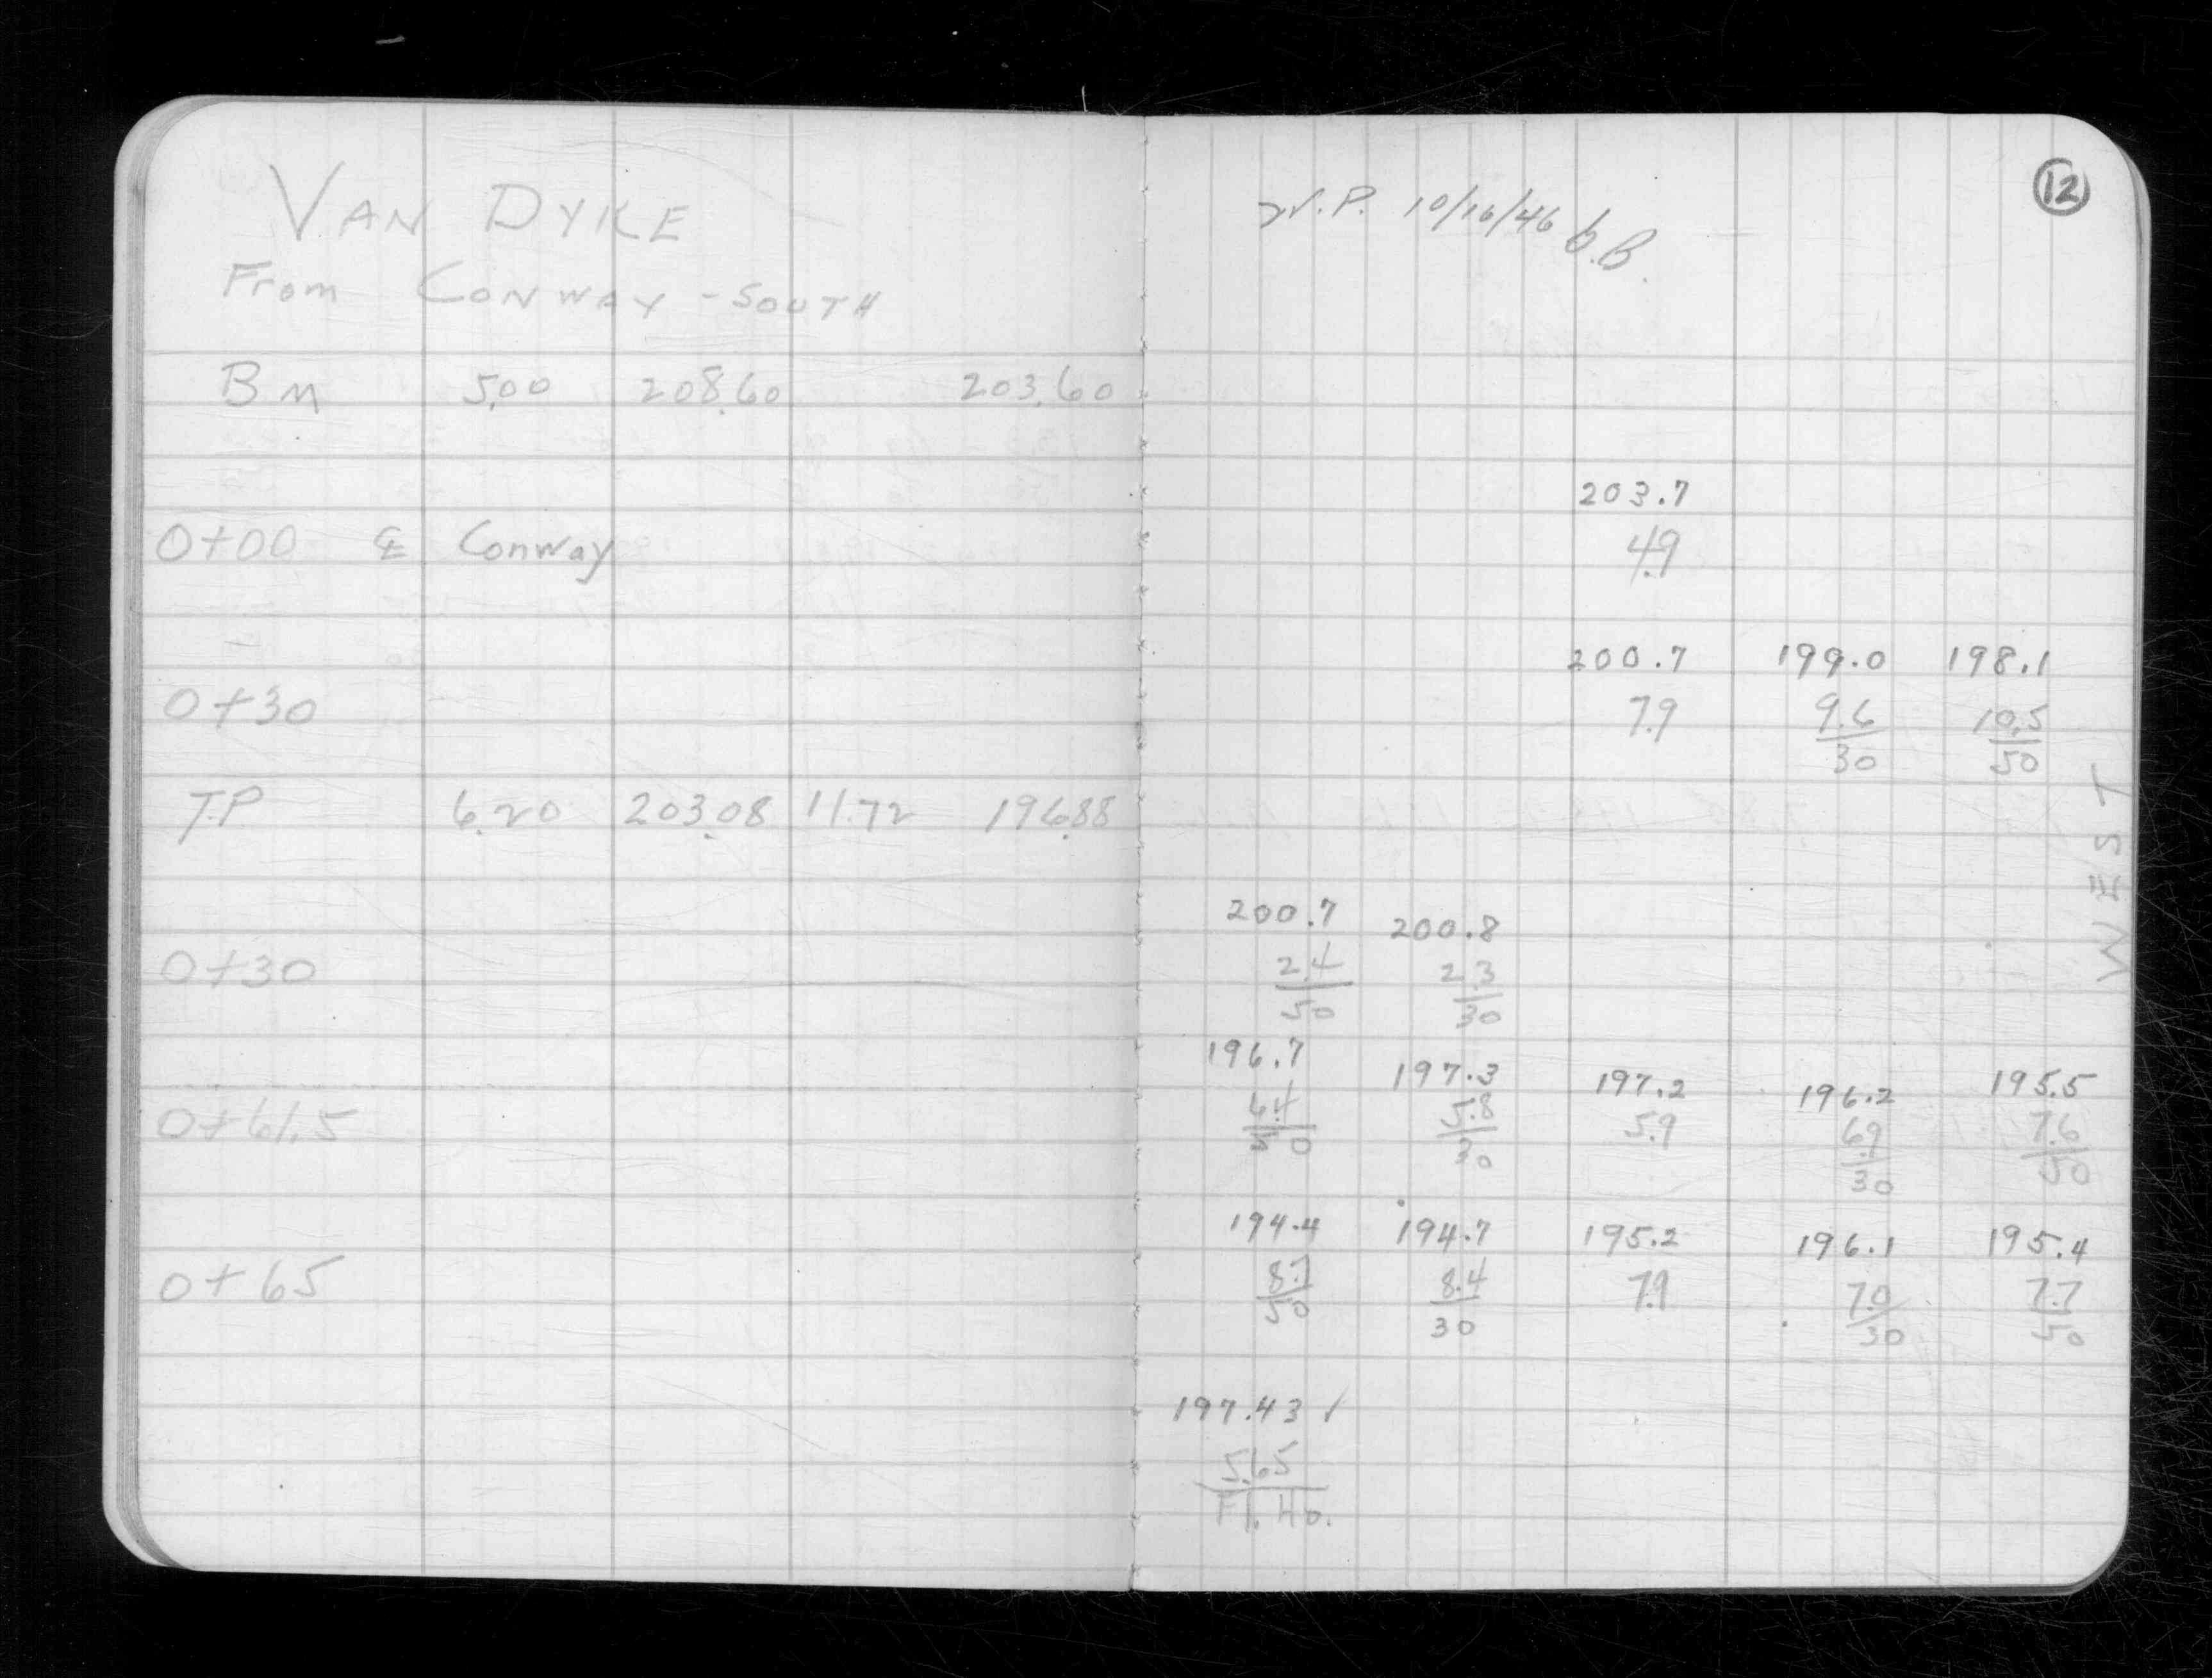 VAN DYKE
From CONWAY - SOUTH
BM 5.00 208.60 203.60
0+00 ℄ Conway
0+30
T.P 6.20 203.08 11.72 196.88
0+30
0+61.5
0+65
W.P. 10/16/46 b.B.
12
203.7
4.9
200.7 199.0 198.1
7.9 9.6 10.5
30 50
WEST
200.7 200.8
2.4 2.3
50 30
196.7 197.3 197.2 196.2 195.5
6.4 5.8 5.9 6.9 7.6
50 30 30 50
194.4 194.7 195.2 196.1 195.4
8.7 8.4 7.9 7.0 7.7
50 30 30 50
197.43 ✓
5.65
Fl. Ho.